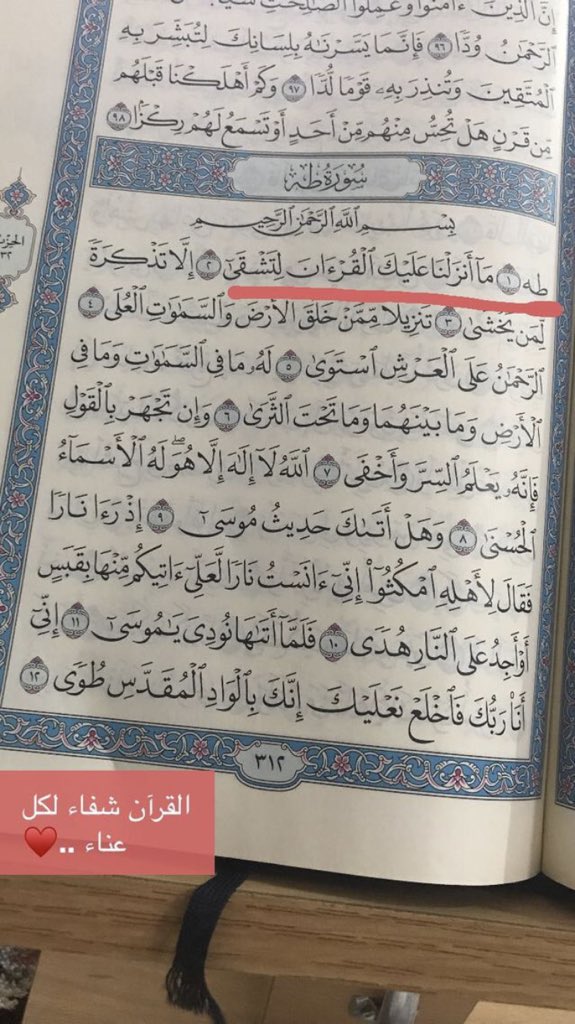 إِنَّ الَّذِينَ ءَامَنُوا وَعَمِلُوا الصَّالِحَاتِ
الرَّحْمَٰنُ وُدًّا ٩٦ فَإِنَّمَا يَسَّرْنَاهُ بِلِسَانِكَ لِتُبَشِّرَ بِهِ
الْمُتَّقِينَ وَتُنذِرَ بِهِۦ قَوْمًا لُّدًّا ٩٧ وَكَمْ أَهْلَكْنَا قَبْلَهُم
مِّن قَرْنٍ هَلْ تُحِسُّ مِنْهُم مِّنْ أَحَدٍ أَوْ تَسْمَعُ لَهُمْ رِكْزًا ٩٨
سُورَةُ طه
بِسْمِ اللَّهِ الرَّحْمَٰنِ الرَّحِيمِ
طه ١ مَآ أَنزَلْنَا عَلَيْكَ الْقُرْءَانَ لِتَشْقَىٰٓ ٢ إِلَّا تَذْكِرَةً
لِّمَن يَخْشَىٰ ٣ تَنزِيلًا مِّمَّنْ خَلَقَ الْأَرْضَ وَالسَّمَٰوَٰتِ الْعُلَى ٤
الرَّحْمَٰنُ عَلَى الْعَرْشِ اسْتَوَىٰ ٥ لَهُۥ مَا فِي السَّمَٰوَٰتِ وَمَا فِي
الْأَرْضِ وَمَا بَيْنَهُمَا وَمَا تَحْتَ الثَّرَىٰ ٦ وَإِن تَجْهَرْ بِالْقَوْلِ
فَإِنَّهُۥ يَعْلَمُ السِّرَّ وَأَخْفَى ٧ اللَّهُ لَآ إِلَٰهَ إِلَّا هُوَۖ لَهُ الْأَسْمَآءُ
الْحُسْنَىٰ ٨ وَهَلْ أَتَىٰكَ حَدِيثُ مُوسَىٰٓ ٩ إِذْ رَءَا نَارًا
فَقَالَ لِأَهْلِهِ امْكُثُوٓا إِنِّيٓ ءَانَسْتُ نَارًا لَّعَلِّيٓ ءَاتِيكُم مِّنْهَا بِقَبَسٍ
أَوْ أَجِدُ عَلَى النَّارِ هُدًى ١٠ فَلَمَّآ أَتَىٰهَا نُودِيَ يَٰمُوسَىٰٓ ١١ إِنِّيٓ
أَنَا۠ رَبُّكَ فَاخْلَعْ نَعْلَيْكَ إِنَّكَ بِالْوَادِ الْمُقَدَّسِ طُوًى ١٢
٣١٢
القرآن شفاء لكل
عناء ..♥️